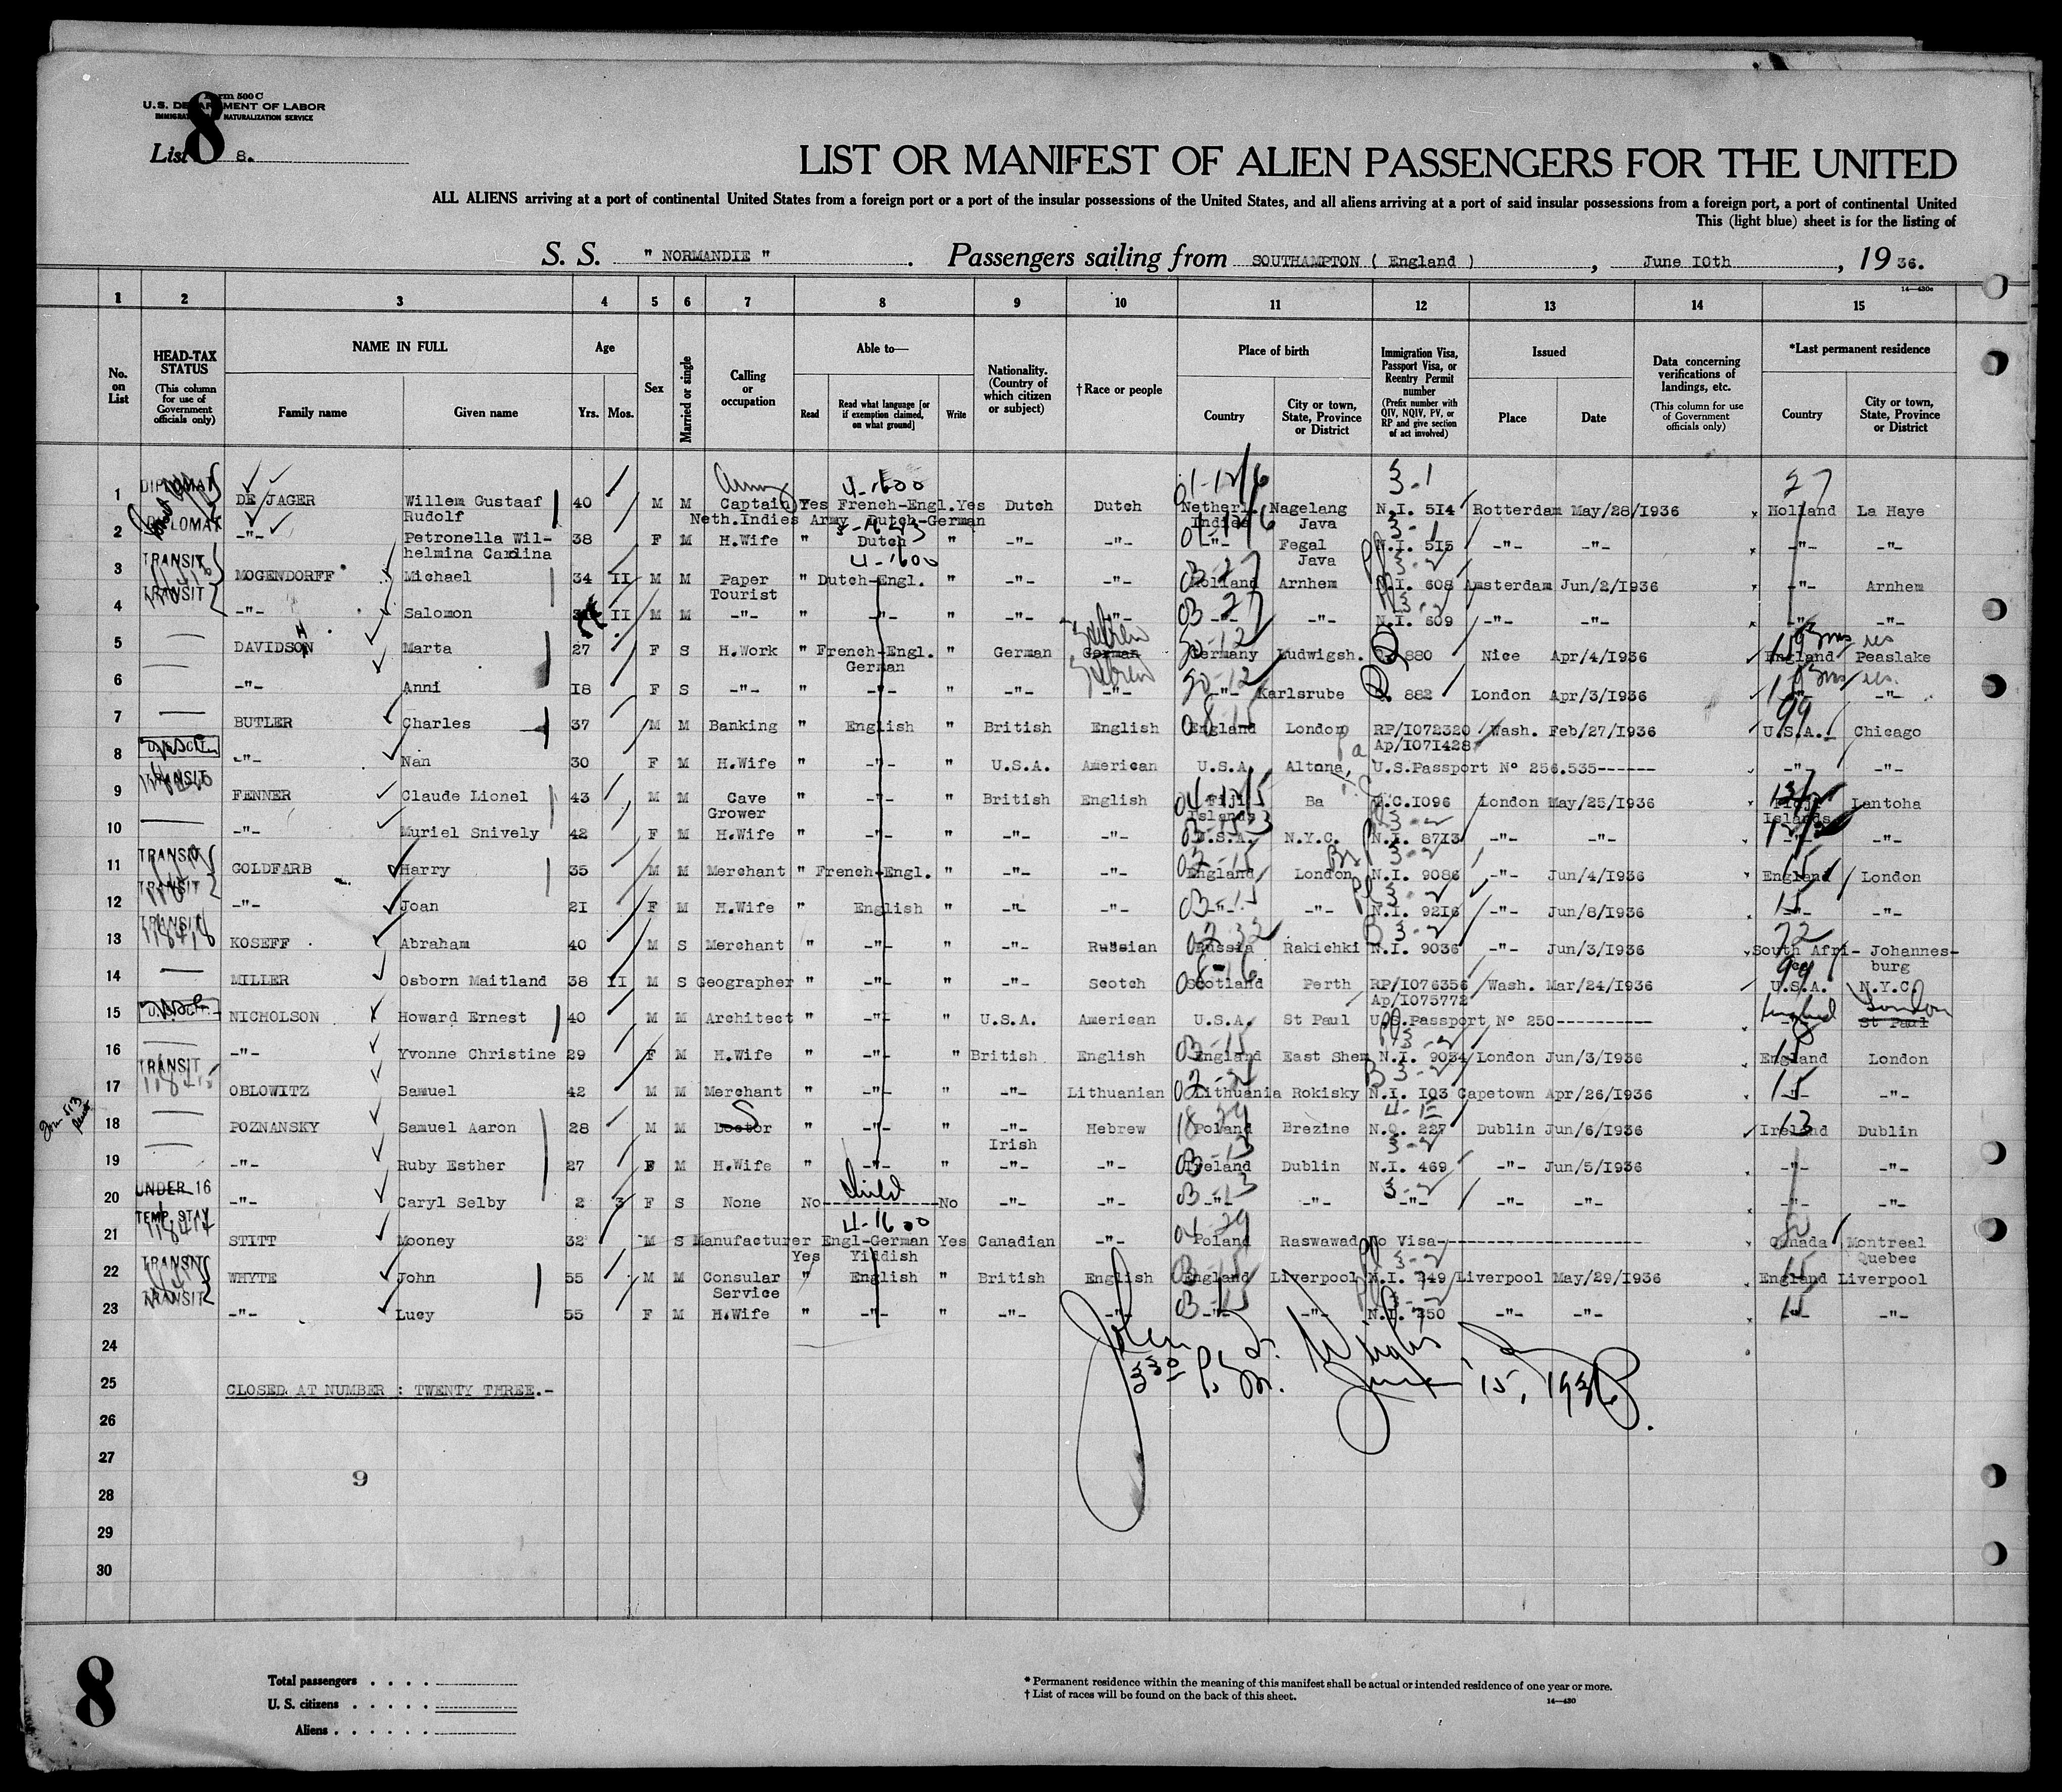 Form 500 C
U.S. DEPARTMENT OF LABOR
IMMIGRATION NATURALIZATION SERVICE
8
List 8.
LIST OR MANIFEST OF ALIEN PASSENGERS FOR THE UNITED
ALL ALIENS arriving at a port of continental United States from a foreign port or a port of the insular possessions of the United States, and all aliens arriving at a port of said insular possessions from a foreign port, a port of continental United
This (light blue) sheet is for the listing of
S. S. " NORMANDIE " . Passengers sailing from SOUTHAMPTON ( England ) , June I0th , 19 36.
14—430c
1 2 3 4 5 6 7 8 9 10 11 12 13 14 15
No. on List
HEAD-TAX STATUS (This column for use of Government officials only)
NAME IN FULL
Family name Given name
Age
Yrs. Mos.
Sex
Married or single
Calling or occupation
Able to—
Read Read what language [or if exemption claimed, on what ground] Write
Nationality. (Country of which citizen or subject)
† Race or people
Place of birth
Country City or town, State, Province or District
Immigration Visa, Passport Visa, or Reentry Permit number (Prefix number with QIV, NQIV, PV, or RP and give section of act involved)
Issued
Place Date
Data concerning verifications of landings, etc. (This column for use of Government officials only)
*Last permanent residence
Country City or town, State, Province or District
Army 4-1600 1-12/6 3-1 27
1 DIPLOMAT DE JAGER Willem Gustaaf 40 M M Captain Yes French-Engl. Yes Dutch Dutch Netherl. Nagelang N.I. 5I4 Rotterdam May/28/I936 Holland La Haye
Rudolf Neth.Indies Army Dutch-German Indies Java
2 DIPLOMAT -"- Petronella Wil- 38 F M H.Wife " Dutch " -"- -"- -"- Fegal N.I. 5I5 -"- -"- -"- -"-
helmina Carolina Java
4-1600
3 TRANSIT MOGENDORFF Michael 34 II M M Paper " Dutch-Engl. " -"- -"- Holland Arnhem N.I. 608 Amsterdam Jun/2/I936 -"- Arnhem
Tourist
4 TRANSIT -"- Salomon II M M -"- " -"- " -"- -"- -"- -"- N.I. 609 -"- -"- -"- -"-
Hebrew
5 DAVIDSOHN Marta 27 F S H.Work " French-Engl. " German German Germany Ludwigsh. 880 Nice Apr/4/I936 England Peaslake
German Hebrew
6 -"- Anni I8 F S -"- " -"- " -"- -"- -"- Karlsrube 882 London Apr/3/I936 -"- -"-
99
7 BUTLER Charles 37 M M Banking " English " British English England London RP/I072320 Wash. Feb/27/I936 U.S.A. Chicago
Ap/I07I428
8 -"- Nan 30 F M H.Wife " -"- " U.S.A. American U.S.A. Altona, Pa U.S.Passport N° 256.535------ -"- -"-
9 TRANSIT FENNER Claude Lionel 43 M M Cave " -"- " British English Fiji Ba P.C.I096 London May/25/I936 Fiji Lantoha
Grower Islands Islands
10 -"- Muriel Snively 42 F M H.Wife " -"- " -"- -"- U.S.A. N.Y.C. N.I. 87I3 -"- -"- -"- -"-
11 TRANSIT GOLDFARB Harry 35 M M Merchant " French-Engl. " -"- -"- England London N.I. 9086 -"- Jun/4/I936 England London
12 TRANSIT -"- Joan 2I F M H.Wife " English " -"- -"- -"- -"- N.I. 92I6 -"- Jun/8/I936 -"- -"-
13 TRANSIT KOSEFF Abraham 40 M S Merchant " -"- " -"- Russian Russia Rakichki N.I. 9036 -"- Jun/3/I936 South Afri- Johannes-
ca burg
14 MILLER Osborn Maitland 38 II M S Geographer " -"- " -"- Scotch Scotland Perth RP/I076356 Wash. Mar/24/I936 U.S.A. N.Y.C.
Ap/I075772
15 NICHOLSON Howard Ernest 40 M M Architect " -"- " U.S.A. American U.S.A. St Paul U.S.Passport N° 250---------- England London St Paul
16 -"- Yvonne Christine 29 F M H.Wife " -"- " British English England East Shem N.I. 9034 London Jun/3/I936 England London
17 TRANSIT OBLOWITZ Samuel 42 M M Merchant " -"- " -"- Lithuanian Lithuania Rokisky N.I. I03 Capetown Apr/26/I936 -"- -"-
18 POZNANSKY Samuel Aaron 28 M M Doctor " -"- " -"- Hebrew Poland Brezine N.Q. 227 Dublin Jun/6/I936 Ireland Dublin
Irish
19 -"- Ruby Esther 27 F M H.Wife " -"- " -"- -"- Ireland Dublin N.I. 469 -"- Jun/5/I936 -"- -"-
child
20 UNDER 16 -"- Caryl Selby 2 3 F S None No------------No -"- -"- -"- -"- -"- -"- -"- -"- -"-
4-1600
21 TEMP. STAY STITT Mooney 32 M S Manufacturer Engl-German Yes Canadian -"- Poland Raswawad No Visa-------------------- Canada Montreal
Yes Yiddish Quebec
22 TRANSIT WHYTE John 55 M M Consular " English " British English England Liverpool N.I. 349 Liverpool May/29/I936 England Liverpool
Service
23 TRANSIT -"- Lucy 55 F M H.Wife " -"- " -"- -"- -"- -"- N.I. 350 -"- -"- -"- -"-
24
330 P.M. June 15, 1936.
25 CLOSED AT NUMBER : TWENTY THREE.-
26
27
9
28
29
30
8
Total passengers . . . .
U. S. citizens . . . . .
Aliens . . . . . .
* Permanent residence within the meaning of this manifest shall be actual or intended residence of one year or more.
† List of races will be found on the back of this sheet.
14—430